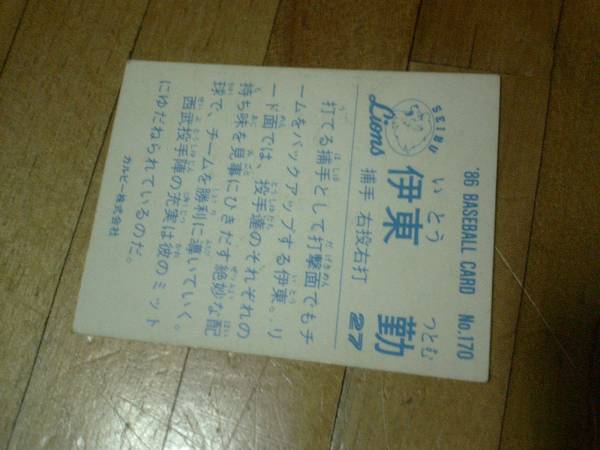 '86 BASEBALL CARD No.170
SEIBU
Lions
いとう つとむ
伊東 勤
捕手 右投右打 27
打てる捕手として打撃面でもチ
ームをバックアップする伊東。リ
ード面では、投手達のそれぞれの
持ち味を見事にひきだす絶妙な配
球で、チームを勝利に導いていく。
西武投手陣の充実は彼のミット
にゆだねられているのだ。
カルビー株式会社